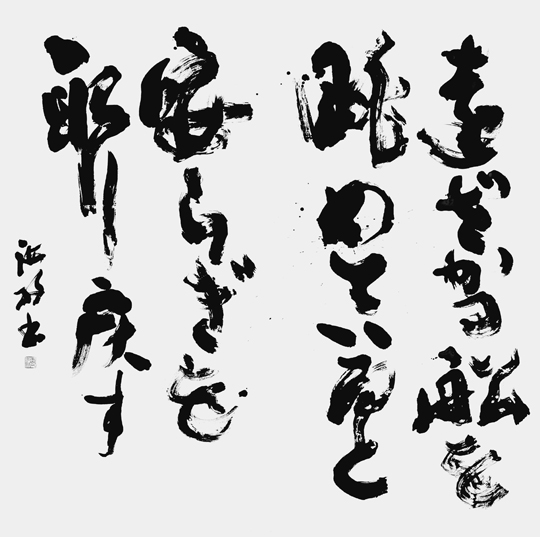 遠ざかる船を
眺めていると
安らぎを
取り戻す
書